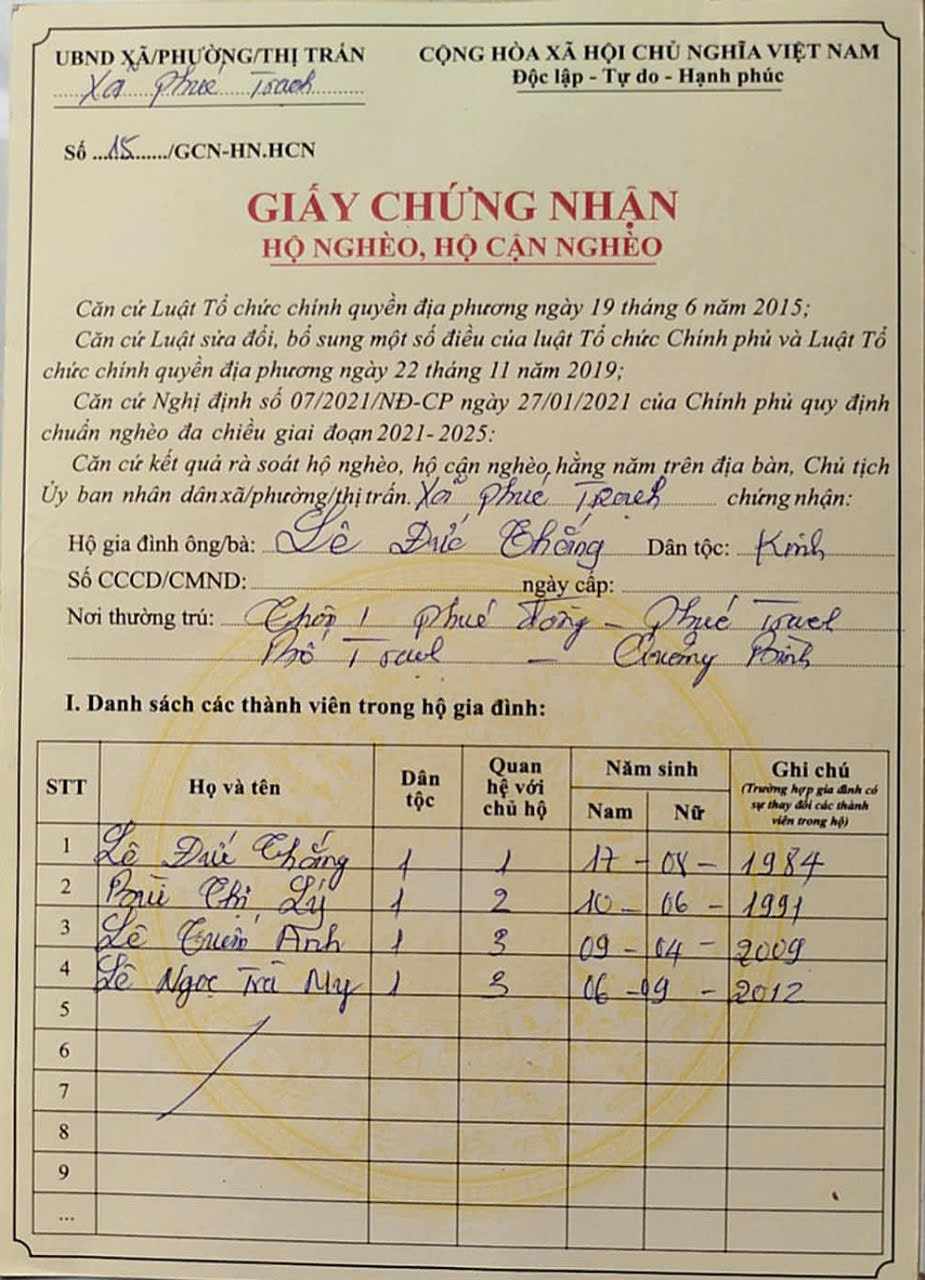 UBND XÃ/PHƯỜNG/THỊ TRẤN
Xã Phúc Trạch
CỘNG HÒA XÃ HỘI CHỦ NGHĨA VIỆT NAM
Độc lập - Tự do - Hạnh phúc
Số ...15....../GCN-HN.HCN
GIẤY CHỨNG NHẬN
HỘ NGHÈO, HỘ CẬN NGHÈO
Căn cứ Luật Tổ chức chính quyền địa phương ngày 19 tháng 6 năm 2015;
Căn cứ Luật sửa đổi, bổ sung một số điều của luật Tổ chức Chính phủ và Luật Tổ
chức chính quyền địa phương ngày 22 tháng 11 năm 2019;
Căn cứ Nghị định số 07/2021/NĐ-CP ngày 27/01/2021 của Chính phủ quy định
chuẩn nghèo đa chiều giai đoạn 2021-2025:
Căn cứ kết quả rà soát hộ nghèo, hộ cận nghèo hằng năm trên địa bàn, Chủ tịch
Ủy ban nhân dân xã/phường/thị trấn. Xã Phúc Trạch chứng nhận:
Hộ gia đình ông/bà: Lê Đức Thắng Dân tộc: Kinh
Số CCCD/CMND: ngày cấp:
Nơi thường trú: Thôn 1 Phúc Đồng - Phúc Trạch
Bố Trạch - Quảng Bình
I. Danh sách các thành viên trong hộ gia đình:
STT Họ và tên Dân tộc Quan hệ với chủ hộ Năm sinh Nam Nữ Ghi chú (Trường hợp gia đình có sự thay đổi các thành viên trong hộ)
1 Lê Đức Thắng 1 1 17 - 08 - 1984
2 Bùi Thị Lý 1 2 10 - 06 - 1991
3 Lê Tuấn Anh 1 3 09 - 04 - 2009
4 Lê Ngọc Trà My 1 3 06 - 09 - 2012
5
6
7
8
9
...